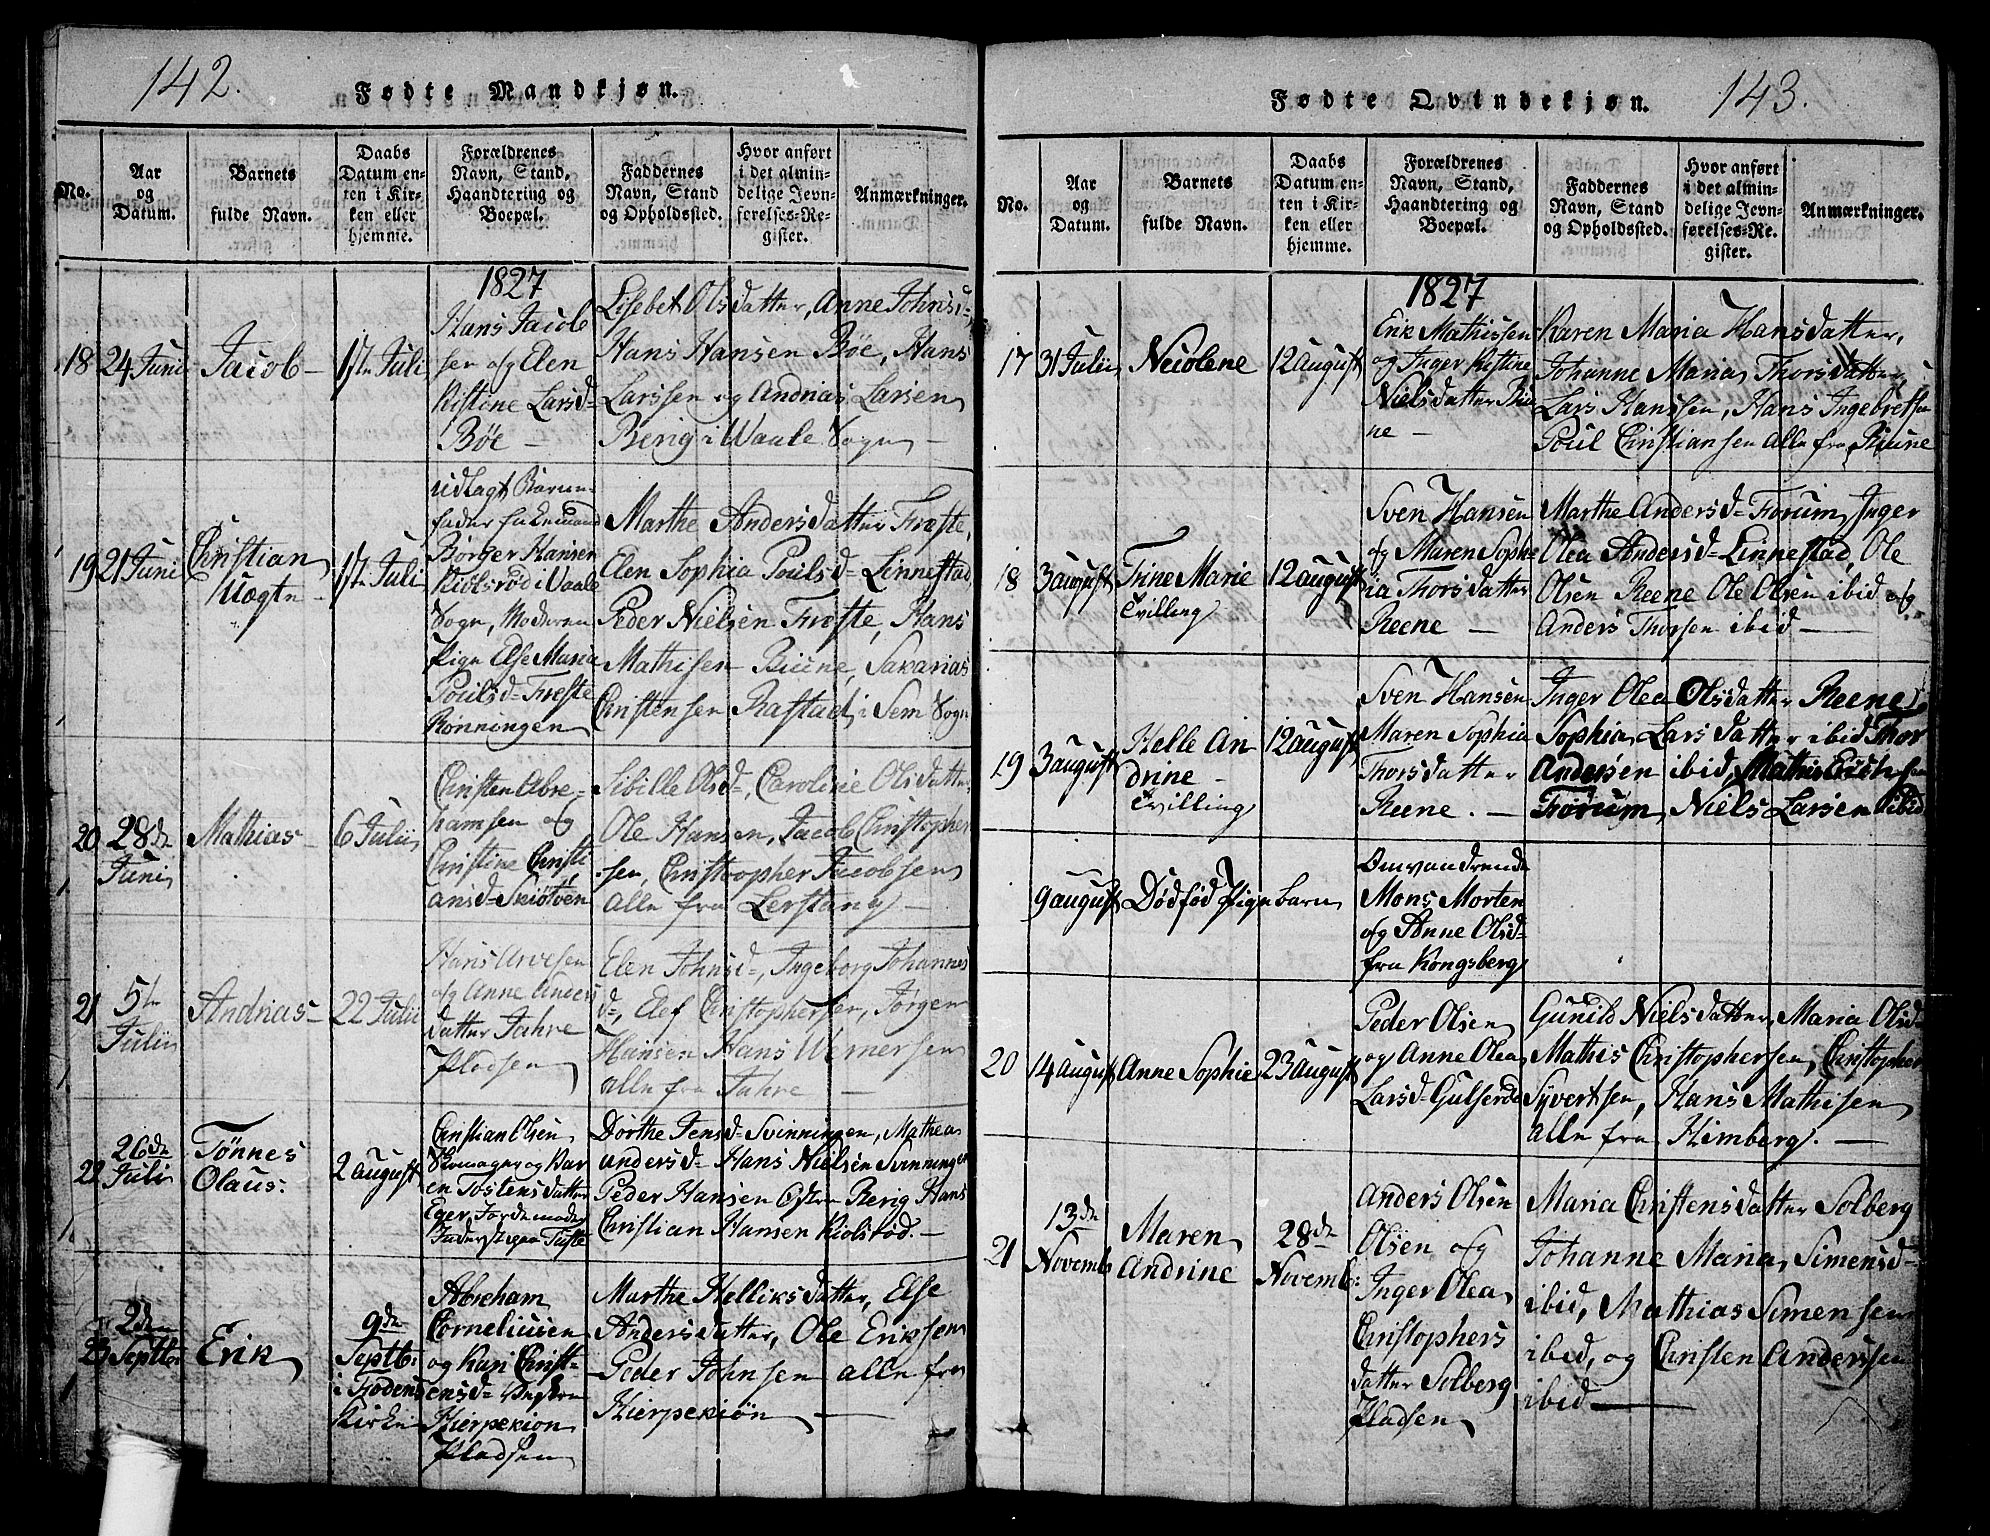 142.
Fødte Mandkjøn.
No.
Aar
og
Datum.
Barnets
fulde Navn.
Daabs
Datum en-
ten i Kir-
ken eller
hjemme.
Forældrenes
Navn, Stand,
Haandtering og
Boepæl.
Faddernes
Navn, Stand
og Opholdssted.
Hvor anført
i det almin-
delige Jevn-
førelses-Re-
gister.
Anmærkninger.
18
24 Juni
Jacob
17de Juli
1827
Hans Jacob
sen og Elen
Kistine Larsd=
Bøe -
Lisebet Olsdatter, Anne Johnsd=,
Hans Hansen Bøe, Hans
Larssen og Andrias Larsen
Berig i Waale Sogn -
19
21 Juni
Christian
17de Juli
udlagt Barne-
fader
Børger Hansen
Kiolsrød i Waale
Sogn, Moderen
Pigen Else Maria
Poulsd= Freste
Rønningen
Marthe Andersdatter Freste,
Elen Sophia Poulsd= Linnestad
Peder Nielsen Freste, Hans
Mathisen Riiene, Sakarias
Christensen Rastad i Sem Sogn
20
28de
Juni
Mathias
6 Julii
Christen Abre-
hamsen og
Christine Christi
ansd=
Sibille Olsd=, Caroline Olsdatter,
Ole Hansen, Jacob Christopher
sen, Christopher Jacobsen
alle fra Lerstang -
21
5te
Julii
Andrias
22 Julii
Hans
og Anne Anders
datter Jahre
Pladsen
Elen Johnsd=, Ingeborg Johannes
d=, Elef Christophersen, Jørgen
Hansen Hans Wernersen
alle fra Jahre -
22
26de
Juli
Tønnes
Olaus.
2 august
Christian Olsen
Skomager og Kar
en Tostensdatter
Eger,
Dorthe Jensd= Svinningen, Mathea
andersd= Hans Nielsen Svinningen
Peder Hansen Østre Berig Hans
Christian Hansen Kiolsrød. -
23
2den
Septbr
Erik
9de
Septb:
i Fodens
Kirke
Abreham
Corneliussen
og Kari Christ-
ensd= Vestre
Hierpekiøn
Pladsen
Marthe Helliksdatter, Else
Andersdatter, Ole Eriksen
Peder Johnsen alle fra
Hierpekiøn -
Fødte Qvindekjøn.
143.
No.
Aar
og
Datum.
Barnets
fulde Navn.
Daabs
Datum en-
ten i Kir-
ken eller
hjemme.
Forældrenes
Navn, Stand,
Haandtering og
Boepæl.
Faddernes
Navn, Stand
og Opholdssted.
Hvor anført
i det almin-
delige Jevn-
førelses-Re-
gister.
Anmærkninger.
17
31 Julii
Nicolene
12 august
1827
Erik Mathissen
og Inger Kistine
Nielsdatter Riie
ne -
Karen Maria Hansdatter,
Johanne Maria Thorsdatter,
Lars Hanssen, Hans Ingebretsen
Poul Christiansen alle fra Riiene
18
3 august
Trine Marie
Tvilling
12 august
Sven Hansen
og Maren Soph
ia Thorsdatter
Reene -
Marthe Andersd= Forum Inger
Olea Andersd= Linnestad, Ole
Olsen Reene Ole Olsen ibid og
Anders Thorsen ibid -
19
3 august
Helle An
drine -
Tvilling
12 august
Sven Hansen
Maren Sophia
Thorsdatter
Reene. -
Inger Olea Olsdatter Reene
Sophia Larsdatter ibid Thor
Andersen ibid, Mathis Erichsen
Forum, Niels Larsen ibid
9 august
Dødfød Pigebarn
Omvandrende
Mons Morten
og Anne Olsd=
fra Kongsberg
20
14 august
Anne Sophie
23 august
Peder Olsen
og Anne Olea
Larsd= Gulserød
Gunild Nielsdatter, Maria Olsd=
Mathis Christophersen, Christopher
Syvertsen, Hans Mathisen
alle fra Himberg. -
21
13de
Novemb
Maren
Andrine
28de
Novemb:
Anders Olsen
Olsen og
Inger Olea
Christophers
datter Solberg
Pladsen
Maria Christensdatter Solberg
Johanne Maria Simensd=
ibid, Mathias Simensen
ibid, og Christen Anderssen
ibid -